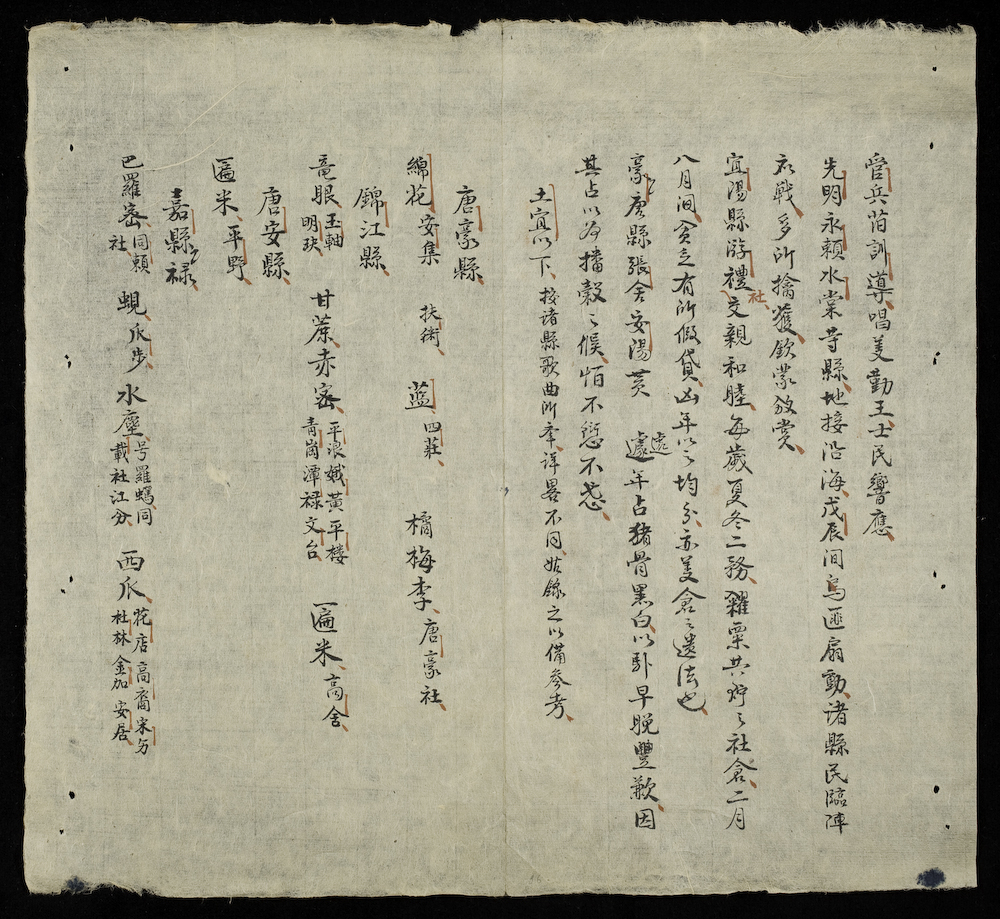 管兵莅訓導唱義勤王士民響應
先明永賴水棠等縣地接沿海戊辰間烏匪扇動諸縣民臨陣
衣戰多所擒獲欽蒙放賞
宜陽縣游禮社交親和睦每歲夏冬二務糴粟共貯之社倉二月
八月間貧乏有所假貸凶年以之均分亦義倉之遺法也
豪唐縣張舍安陽黃處處年占猪骨黑白以卧早晚豐歉因
其占以為播穀之候怕不愆不忒
土宜以下按諸縣歌曲所奉詳畧不同姑錄之以備參考
唐豪縣
綿花 安集 扶衛 藍 四莊 橘梅李 唐豪社
錦江縣
竜眼 玉軸 明玦 甘蔗赤密 平浪 娥黃 平楼 青崗 潭禄 文台 匾米 高舍
唐安縣
匾米 平野
嘉禄縣
巴羅密 同頼社 蜆爪步 水塵 号羅蠣 同載社江分 西爪 花店 高裔 杜林 金加 安居